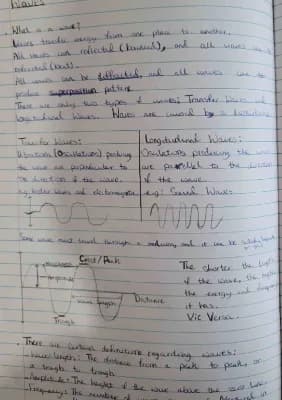 Waves
What is a wave?
Waves transfer energy from one place to another.
All waves can reflected (bounced), and all waves
refracted (bent).
All waves can be diffracted, and all waves can
produce superposition pattern
There are only two types of waves; Transfer Waves
longitudinal Waves. Waves are caused by a
Transfer Waves:
Vibrations (Oscillations) producing
the wave are perpendicular to
the direction of the wave.
e.g. Water Waves and electromagnetic
Longitudinal Waves:
Oscillations producing the wave
are parallel to the direction
of the wave.
e.g: Sound Waves
Some wave must travel through a medium, and it can be
Crest/Peak
Amplitude
Wave length
Distance
Trough
The shorter the
of the wave, the
the energy and
it has.
Vic Versa.
There are certain definitions regarding waves:
- Wave length: The distance from a peak to peak, or
a trough to trough
- Amplitude: The height of the wave above the
- Frequency: The number of waves